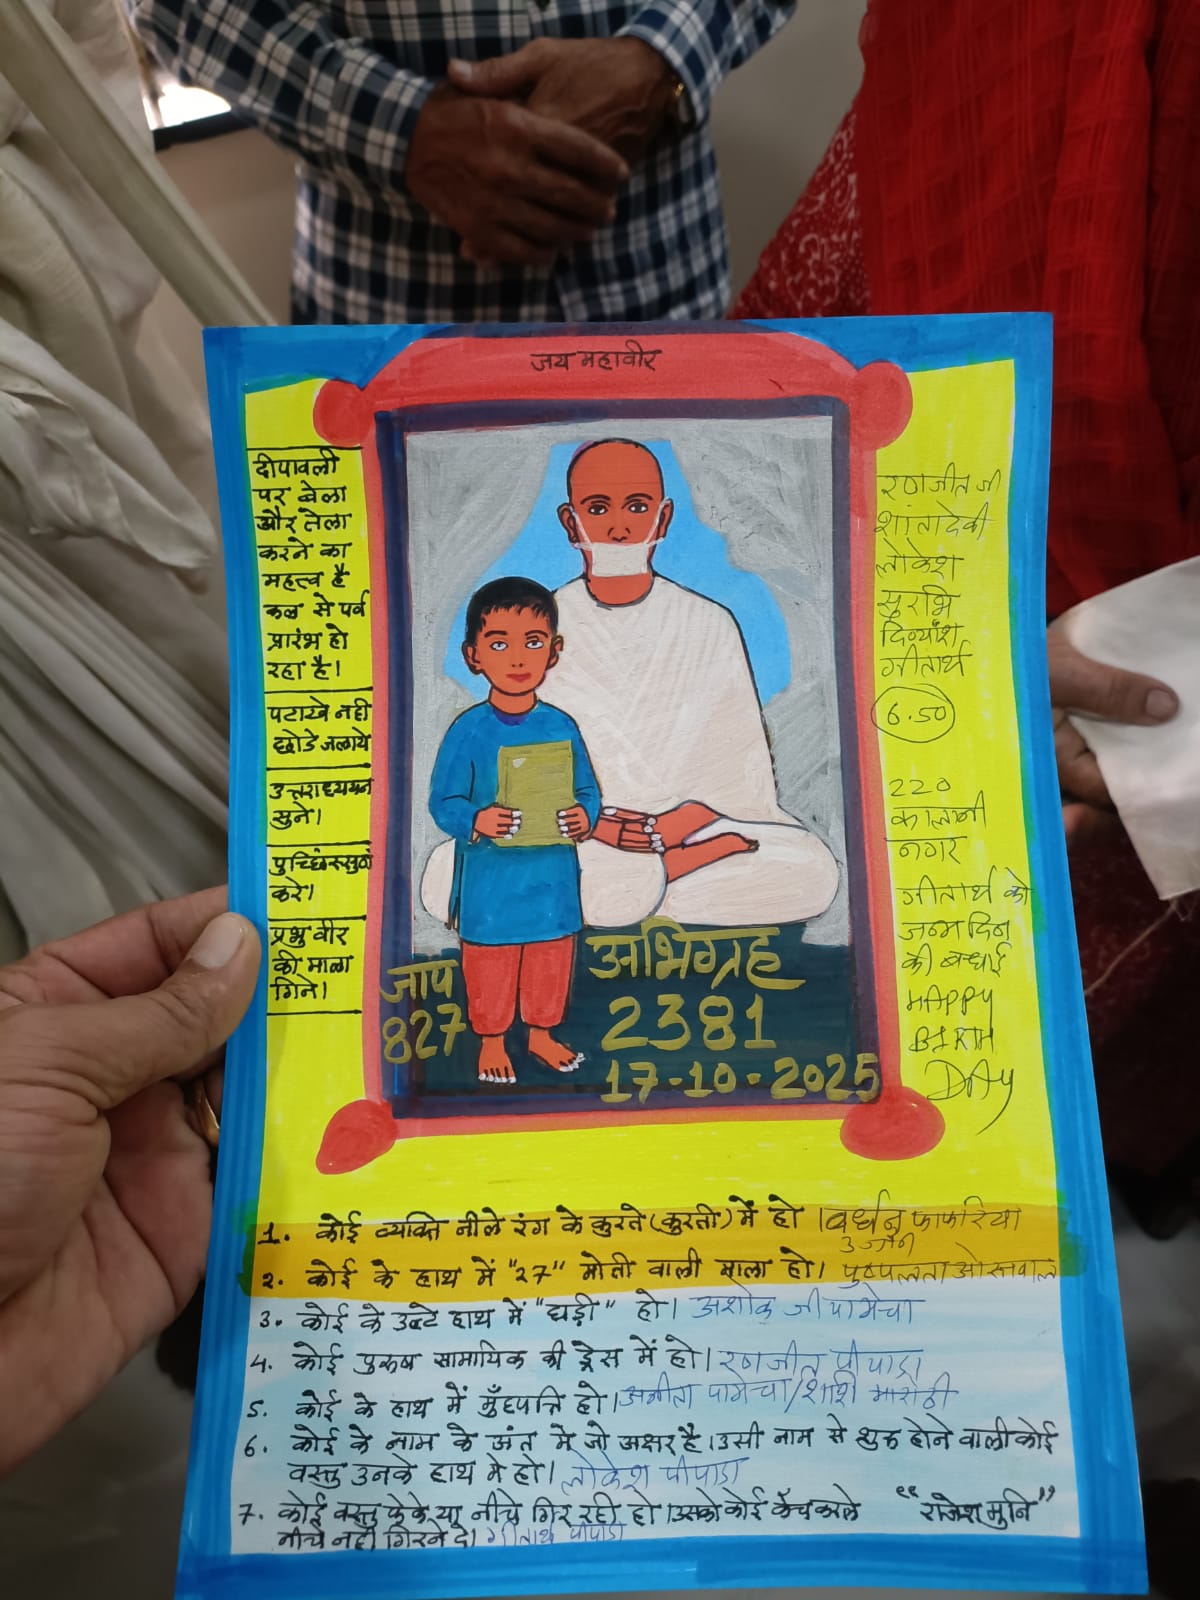 जय महावीर
दीपावली
पर बेला
और तेला
करने का
महत्व है
कल से पर्व
प्रारंभ हो
रहा है।
पटाखे नही
छोडे जलाये
उत्तराध्ययन
सुने।
करे।
प्रभु वीर
की माला
गिने।
जाप
827
अभिग्रह
2381
17-10-2025
रणजीत जी
शांतादेवी
लोकेश
सुरभि
दिव्यांश
गीतार्थ
6.50
220
कालानी
नगर
गीतार्थ को
जन्मदिन
की बधाई
HAPPY
DAY
1. कोई व्यक्ति नीले रंग के कुरते (कुरती) में हो। वर्धन फाफरिया
2. कोई के हाथ में "27" मोती वाली माला हो। पुष्पलता ओस्तवाल
3. कोई के उल्टे हाथ में "घड़ी" हो। अशोक जी पामेचा
4. कोई पुरुष सामायिक की ड्रेस में हो। रणजीत पीपाड़ा
5. कोई के हाथ में मुँहपत्ति हो। अनीता पामेचा/शशि मारोठी
6. कोई के नाम के अंत में जो अक्षर है। उसी नाम से शुरू होने वाली कोई
वस्तु उनके हाथ में हो। लोकेश पीपाड़ा
7. कोई वस्तु फेके या नीचे गिर रही हो। उसको कोई कैच करले
नीचे नही गिरने दे। गीतार्थ पीपाड़ा
"राजेश मुनि"